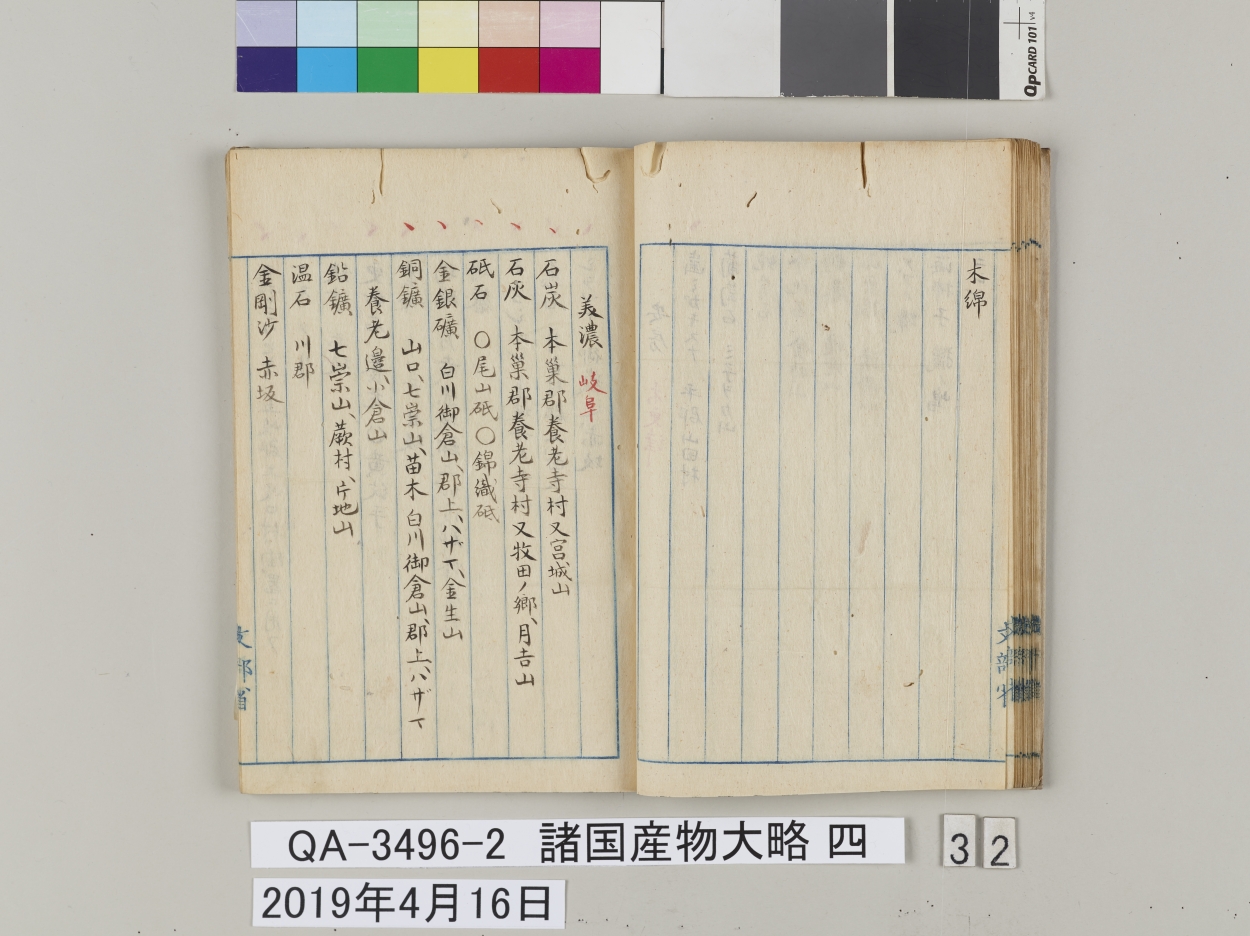 OpCARD 101 v4
木綿
文部省
美濃 岐阜
石炭 本巣郡養老寺村又宮城山
石灰 本巣郡養老寺村又牧田ノ郷、月吉山
砥石 〇尾山砥〇錦織砥
金銀礦 白川御倉山、郡上、ハザマ、金生山
銅鑛 山口、七崇山、苗木白川御倉山、郡上、ハザマ
養老邉、小倉山
鉛鑛 七崇山、蕨村、片地山
温石 川郡
金剛沙 赤坂
文部省
QA-3496-2 諸国産物大略 四
32
2019年4月16日